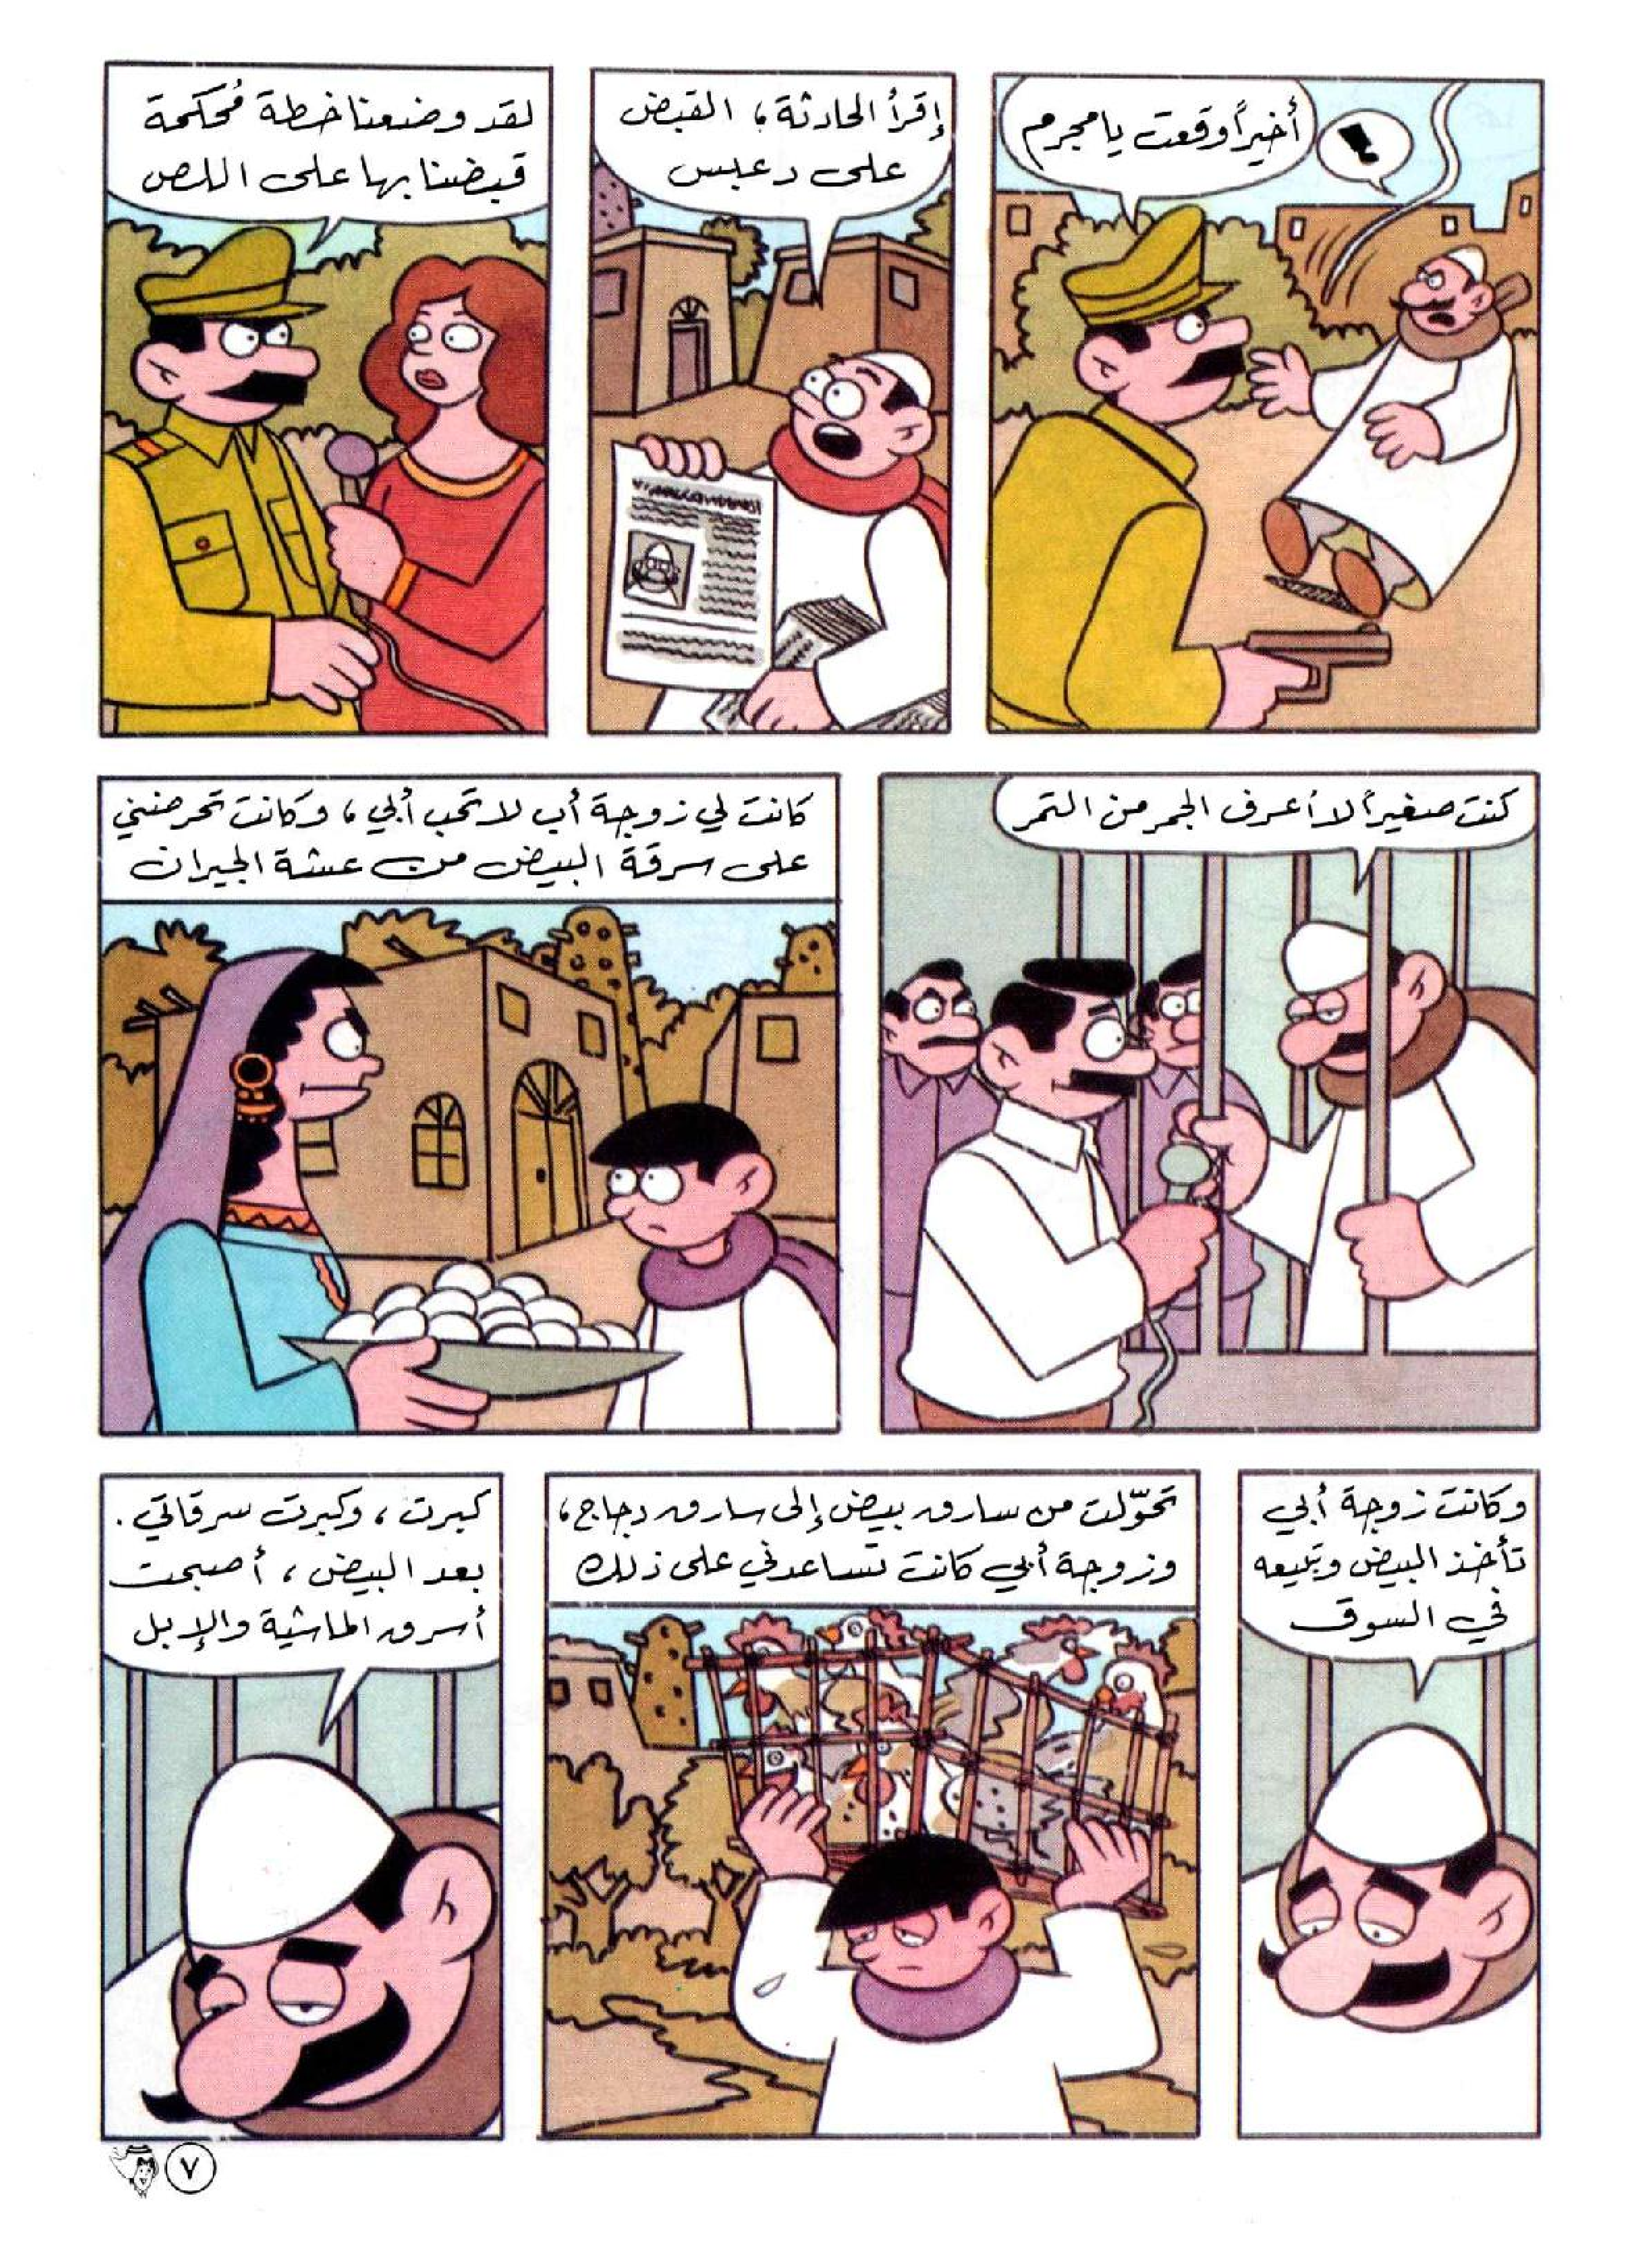 أخيراً وقعت يا مجرم
!
إقرأ الحادثة، القبض
على دعبس
لقد وضعنا خطة مُحكمة
قبضنا بها على اللص
كنت صغيراً لا أعرف الجمر من التمر
كانت لي زوجة أب لا تحب أبي، وكانت تحرضني
على سرقة البيض من عشة الجيران
وكانت زوجة أبي
تأخذ البيض وتبيعه
في السوق
تحوّلت من سارق بيض إلى سارق دجاج،
وزوجة أبي كانت تساعدني على ذلك
كبرت، وكبرت سرقاتي.
بعد البيض، أصبحت
أسرق الماشية والإبل
٧